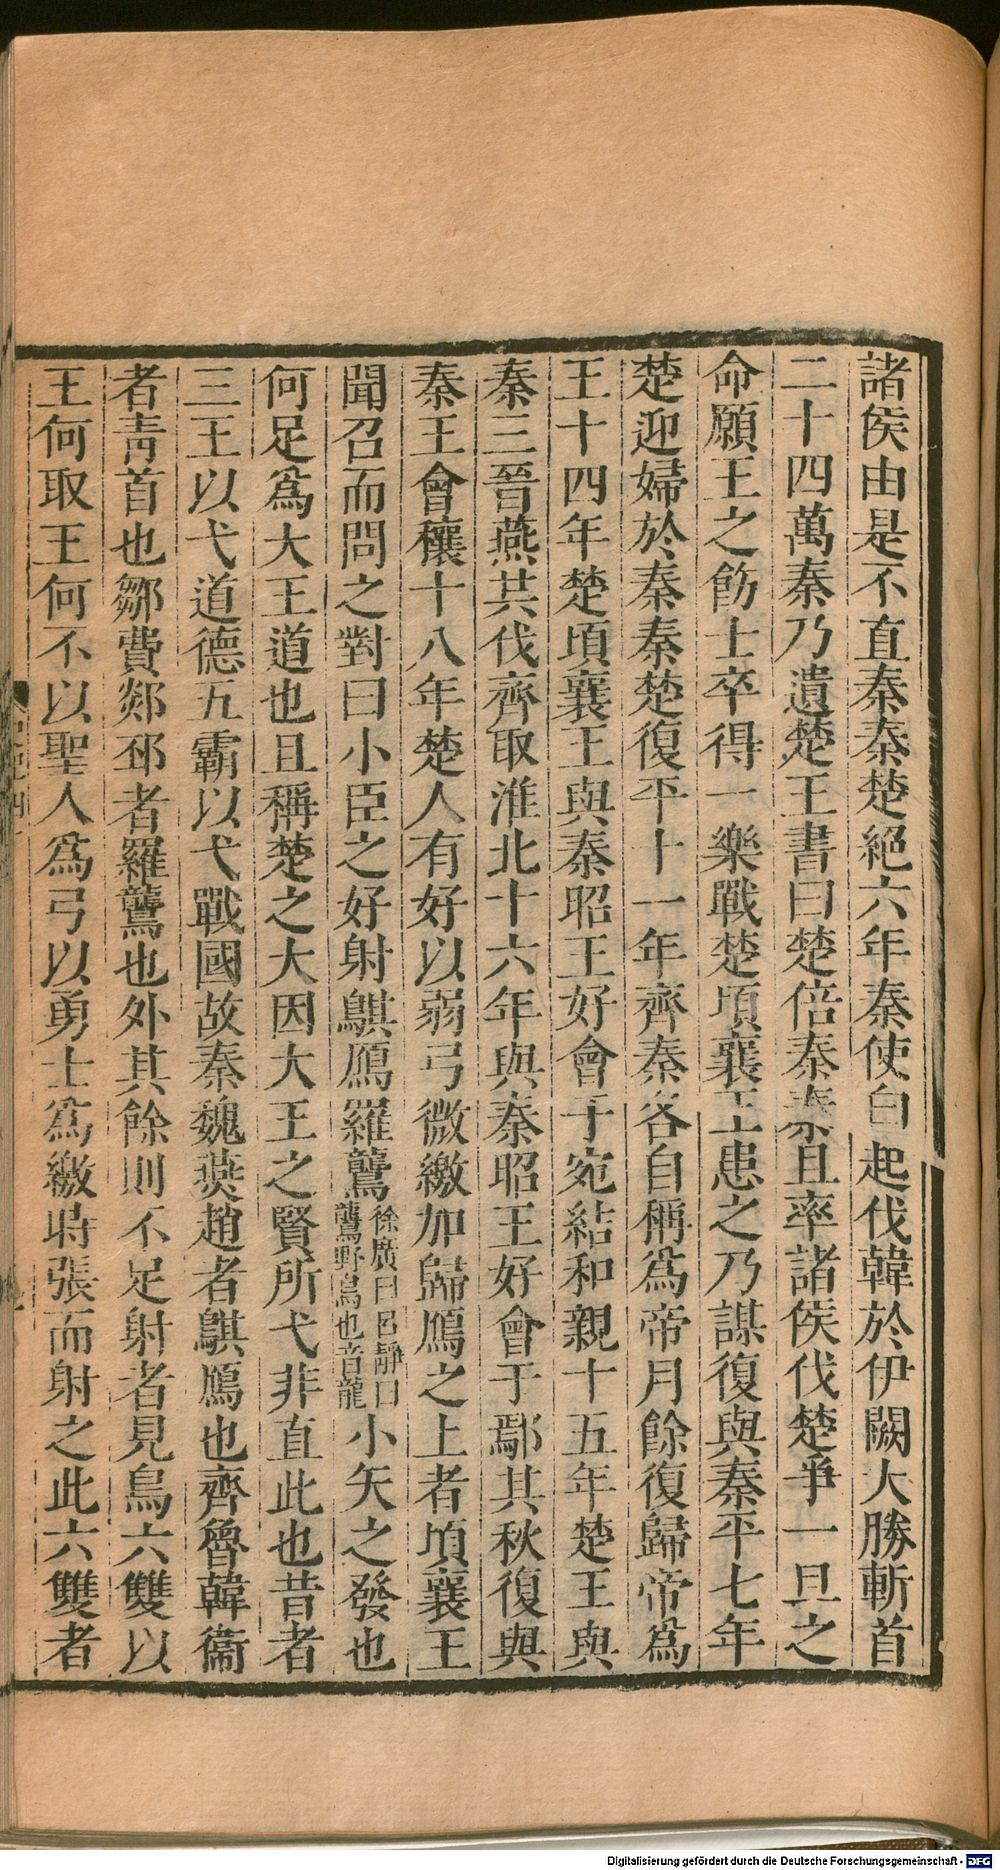 諸侯由是不直秦秦楚絕六年秦使白起伐韓於伊闕大勝斬首
二十四萬秦乃遺楚王書曰楚倍秦秦且率諸侯伐楚爭一旦之
命願王之飭士卒得一樂戰楚頃襄王患之乃謀復與秦平七年
楚迎婦於秦秦楚復平十一年齊秦各自稱爲帝月餘復歸帝爲
王十四年楚頃襄王與秦昭王好會于宛結和親十五年楚王與
秦三晉燕共伐齊取淮北十六年與秦昭王好會于鄢其秋復與
秦王會穰十八年楚人有好以弱弓微繳加歸鴈之上者頃襄王
聞召而問之對曰小臣之好射鶀鴈羅鸗徐廣曰呂靜曰鸗野鳥也音龍小矢之發也
何足爲大王道也且稱楚之大因大王之賢所弋非直此也昔者
三王以弋道德五霸以弋戰國故秦魏燕趙者鶀鴈也齊魯韓衞
者靑首也鄒費郯邳者羅鸗也外其餘則不足射者見鳥六雙以
王何取王何不以聖人爲弓以勇士爲繳時張而射之此六雙者
Digitalisierung gefördert durch die Deutsche Forschungsgemeinschaft - DFG